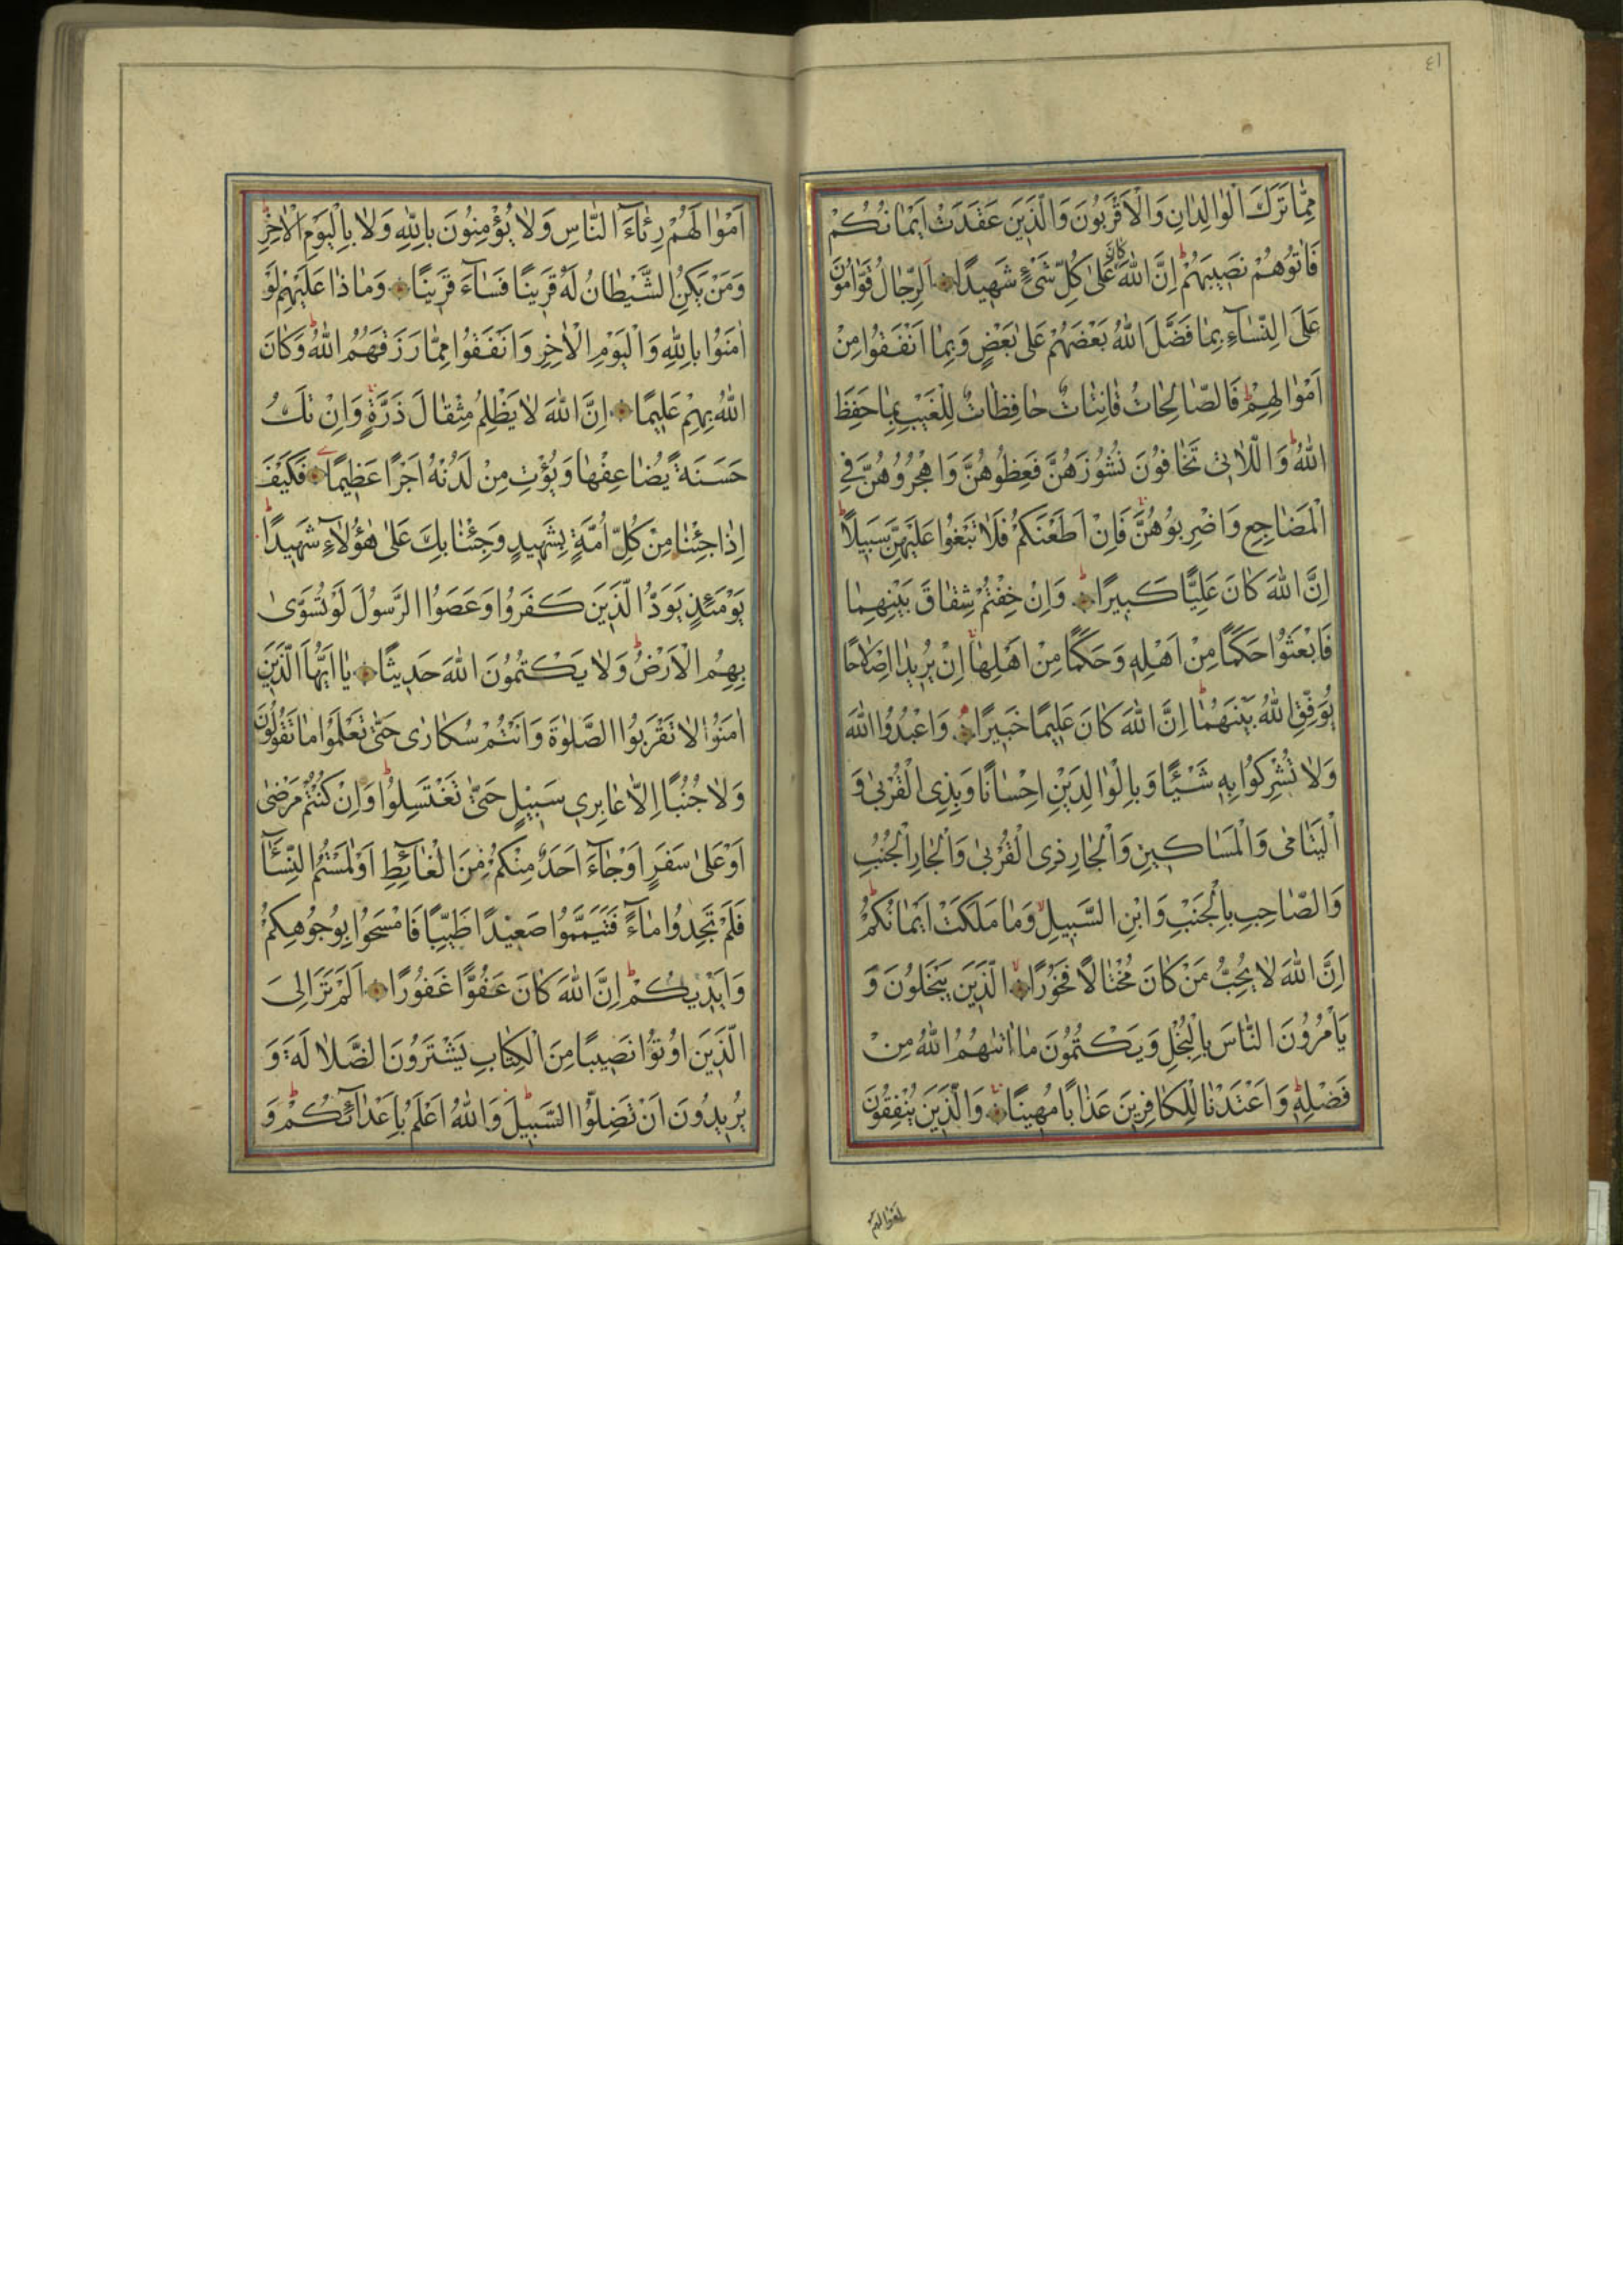 ٤١
مِمّٰا تَرَكَ الْوٰالِدٰانِ وَالْاَقْرَبُونَ وَالَّذٖينَ عَقَدَتْ اَيْمٰانُكُمْ
فَاٰتُوهُمْ نَصٖيبَهُمْ اِنَّ اللّٰهَ كٰانَ عَلىٰ كُلِّ شَىْءٍ شَهٖيدًا اَلرِّجٰالُ قَوّٰامُونَ
عَلَى النِّسٰٓاءِ بِمٰا فَضَّلَ اللّٰهُ بَعْضَهُمْ عَلىٰ بَعْضٍ وَبِمٰا اَنْفَقُوا مِنْ
اَمْوٰالِهِمْ فَالصّٰالِحٰاتُ قٰانِتٰاتٌ حٰافِظٰاتٌ لِلْغَيْبِ بِمٰا حَفِظَ
اللّٰهُ وَاللّٰاتٖى تَخٰافُونَ نُشُوزَهُنَّ فَعِظُوهُنَّ وَاهْجُرُوهُنَّ فِى
الْمَضٰاجِعِ وَاضْرِبُوهُنَّ فَاِنْ اَطَعْنَكُمْ فَلٰا تَبْغُوا عَلَيْهِنَّ سَبٖيلًا
اِنَّ اللّٰهَ كٰانَ عَلِيًّا كَبٖيرًا وَاِنْ خِفْتُمْ شِقٰاقَ بَيْنِهِمٰا
فَابْعَثُوا حَكَمًا مِنْ اَهْلِهٖ وَحَكَمًا مِنْ اَهْلِهٰا اِنْ يُرٖيدٰا اِصْلٰاحًا
يُوَفِّقِ اللّٰهُ بَيْنَهُمٰا اِنَّ اللّٰهَ كٰانَ عَلٖيمًا خَبٖيرًا وَاعْبُدُوا اللّٰهَ
وَلٰا تُشْرِكُوا بِهٖ شَيْئًا وَبِالْوٰالِدَيْنِ اِحْسٰانًا وَبِذِى الْقُرْبىٰ وَ
الْيَتٰامىٰ وَالْمَسٰاكٖينِ وَالْجٰارِ ذِى الْقُرْبىٰ وَالْجٰارِ الْجُنُبِ
وَالصّٰاحِبِ بِالْجَنْبِ وَابْنِ السَّبٖيلِ وَمٰا مَلَكَتْ اَيْمٰانُكُمْ
اِنَّ اللّٰهَ لٰا يُحِبُّ مَنْ كٰانَ مُخْتٰالًا فَخُورًا الَّذٖينَ يَبْخَلُونَ وَ
يَاْمُرُونَ النّٰاسَ بِالْبُخْلِ وَيَكْتُمُونَ مٰا اٰتٰيهُمُ اللّٰهُ مِنْ
فَضْلِهٖ وَاَعْتَدْنٰا لِلْكٰافِرٖينَ عَذٰابًا مُهٖينًا وَالَّذٖينَ يُنْفِقُونَ
اَمْوٰالَهُمْ
اَمْوٰالَهُمْ رِئٰٓاءَ النّٰاسِ وَلٰا يُؤْمِنُونَ بِاللّٰهِ وَلٰا بِالْيَوْمِ الْاٰخِرِ
وَمَنْ يَكُنِ الشَّيْطٰانُ لَهُ قَرٖينًا فَسٰٓاءَ قَرٖينًا وَمٰا ذٰا عَلَيْهِمْ لَوْ
اٰمَنُوا بِاللّٰهِ وَالْيَوْمِ الْاٰخِرِ وَاَنْفَقُوا مِمّٰا رَزَقَهُمُ اللّٰهُ وَكٰانَ
اللّٰهُ بِهِمْ عَلٖيمًا اِنَّ اللّٰهَ لٰا يَظْلِمُ مِثْقٰالَ ذَرَّةٍ وَاِنْ تَكُ
حَسَنَةً يُضٰاعِفْهٰا وَيُؤْتِ مِنْ لَدُنْهُ اَجْرًا عَظٖيمًا فَكَيْفَ
اِذٰا جِئْنٰا مِنْ كُلِّ اُمَّةٍ بِشَهٖيدٍ وَجِئْنٰا بِكَ عَلىٰ هٰٓؤُلٰٓاءِ شَهٖيدًا
يَوْمَئِذٍ يَوَدُّ الَّذٖينَ كَفَرُوا وَعَصَوُا الرَّسُولَ لَوْ تُسَوّىٰ
بِهِمُ الْاَرْضُ وَلٰا يَكْتُمُونَ اللّٰهَ حَدٖيثًا يٰا اَيُّهَا الَّذٖينَ
اٰمَنُوا لٰا تَقْرَبُوا الصَّلٰوةَ وَاَنْتُمْ سُكٰارىٰ حَتّىٰ تَعْلَمُوا مٰا تَقُولُونَ
وَلٰا جُنُبًا اِلّٰا عٰابِرٖى سَبٖيلٍ حَتّىٰ تَغْتَسِلُوا وَاِنْ كُنْتُمْ مَرْضىٰ
اَوْ عَلىٰ سَفَرٍ اَوْ جٰٓاءَ اَحَدٌ مِنْكُمْ مِنَ الْغٰٓائِطِ اَوْ لٰمَسْتُمُ النِّسٰٓاءَ
فَلَمْ تَجِدُوا مٰٓاءً فَتَيَمَّمُوا صَعٖيدًا طَيِّبًا فَامْسَحُوا بِوُجُوهِكُمْ
وَاَيْدٖيكُمْ اِنَّ اللّٰهَ كٰانَ عَفُوًّا غَفُورًا اَلَمْ تَرَ اِلَى
الَّذٖينَ اُوتُوا نَصٖيبًا مِنَ الْكِتٰابِ يَشْتَرُونَ الضَّلٰالَةَ وَ
يُرٖيدُونَ اَنْ تَضِلُّوا السَّبٖيلَ وَاللّٰهُ اَعْلَمُ بِاَعْدٰٓائِكُمْ وَ